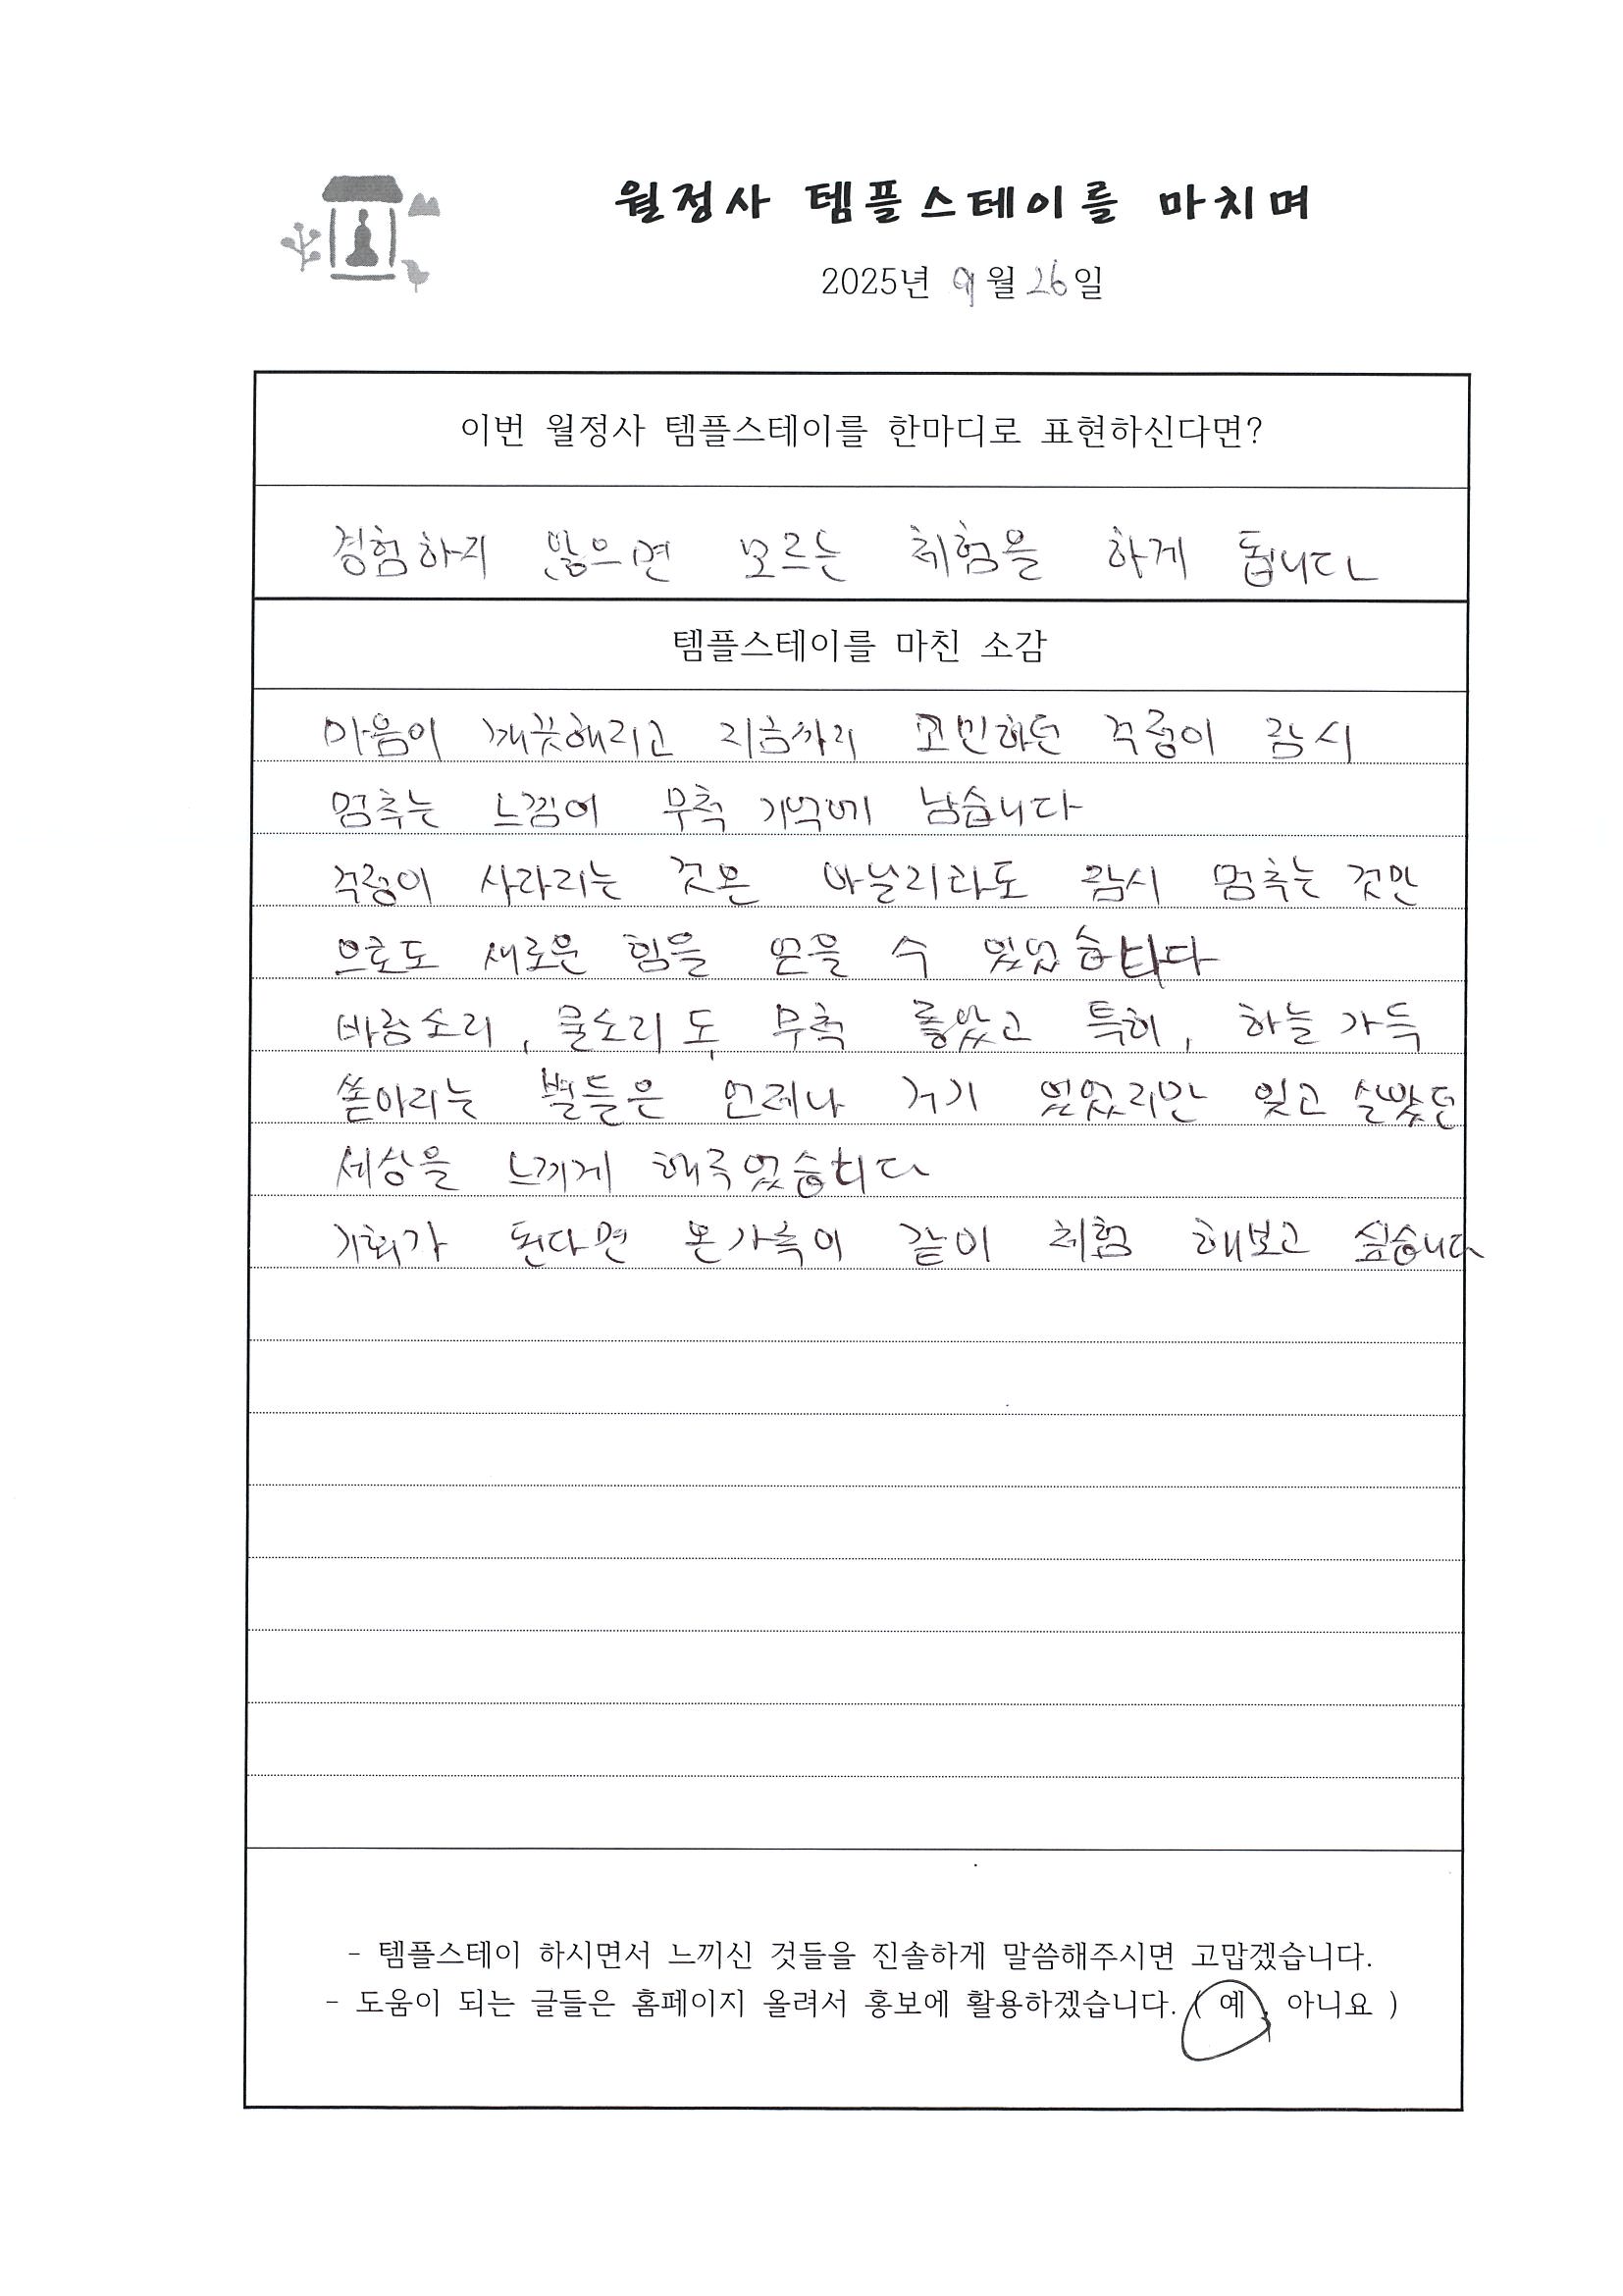 월정사 템플스테이를 마치며
2025년 9월 26일
이번 월정사 템플스테이를 한마디로 표현하신다면?
경험하지 않으면 모르는 체험을 하게 됩니다
템플스테이를 마친 소감
마음이 깨끗해지고 지금까지 고민하던 걱정이 잠시
멈추는 느낌이 무척 기억에 남습니다
걱정이 사라지는 것은 아닐지라도 잠시 멈추는 것만
으로도 새로운 힘을 얻을 수 있었습니다
바람소리, 물소리도 무척 좋았고 특히, 하늘 가득
쏟아지는 별들은 언제나 거기 있었지만 잊고 살았던
세상을 느끼게 해주었습니다
기회가 된다면 온가족이 같이 체험 해보고 싶습니다
- 템플스테이 하시면서 느끼신 것들을 진솔하게 말씀해주시면 고맙겠습니다.
- 도움이 되는 글들은 홈페이지 올려서 홍보에 활용하겠습니다. ( 예 , 아니요 )